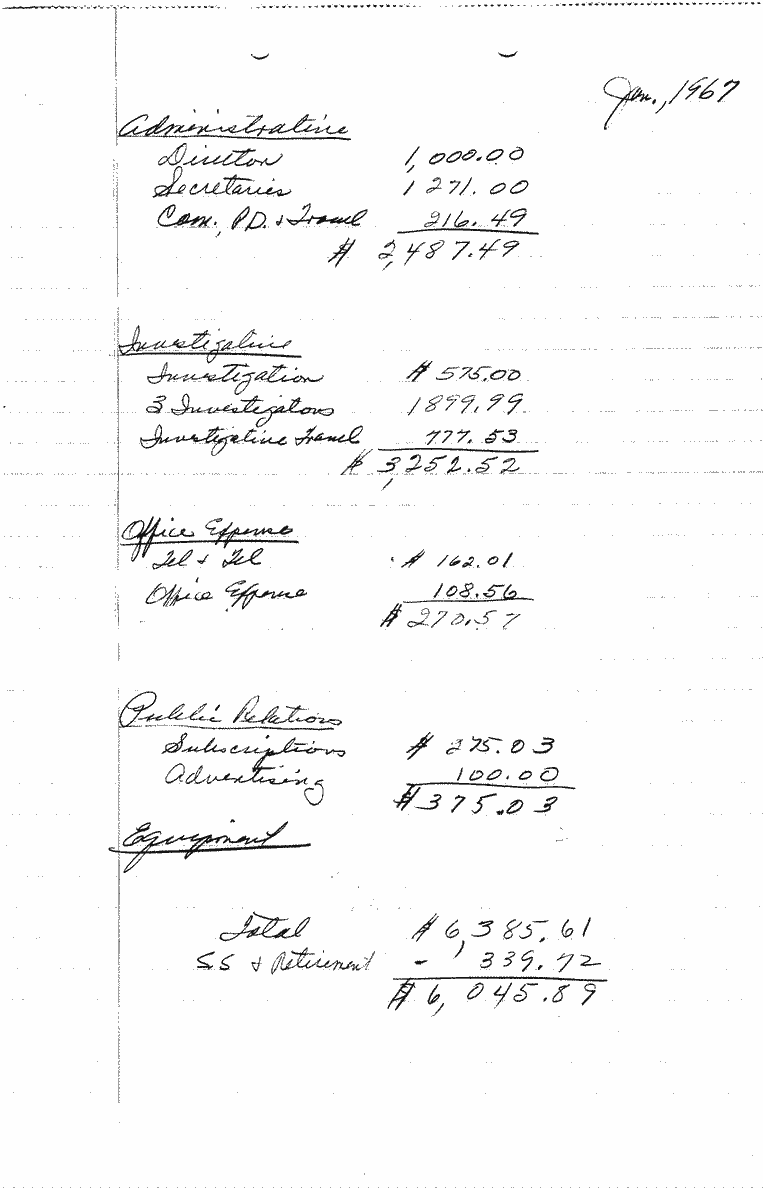 Jan., 1967
Administrative
Director 1,000.00
Secretaries 1271.00
Com., P.D. & Travel 216.49
$ 2,487.49
Investigative
Investigation $ 575.00
3 Investigators 1899.99
Investigative Travel 777.53
$ 3,252.52
Office Expense
Tel & Tel $ 162.01
Office Expense 108.56
$ 270.57
Public Relations
Subscriptions $ 275.03
Advertising 100.00
$ 375.03
Equipment
Total $ 6,385.61
S.S & Retirement - 339.72
$ 6,045.89